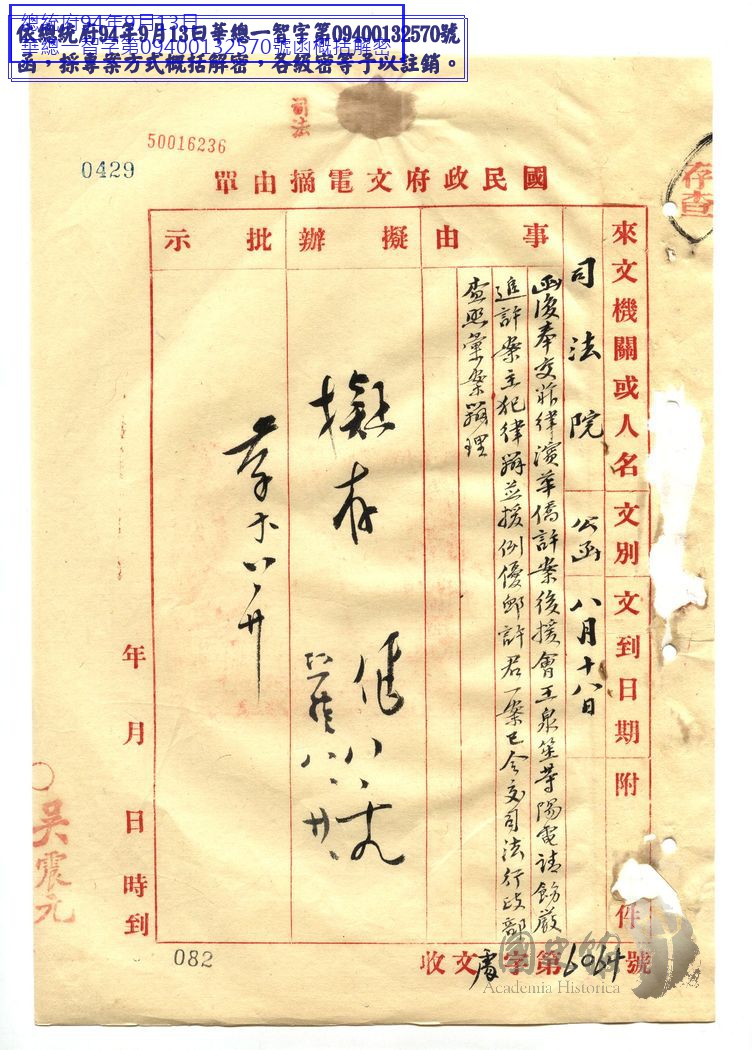 總統府94年9月13日
華總一智字第09400132570號函概括解密
依總統府94年9月13日華總一智字第09400132570號
函，採專案方式概括解密，各級密等予以註銷。
司法
50016236
0429
存查
國民政府文電摘由單
來文機關或人名
司法院
文別
公函
文到日期
八月十八日
附件
事由
函復奉交菲律濱華僑許案後援會王泉笙等陽電請飭嚴
進許案主犯律辦並援例優卹許君一案已令交司法行政部
查照彙案辦理
擬辦
擬存
批示
年月日時到
吳震元
082
收文處字第6064號
國史館
Academia Historica